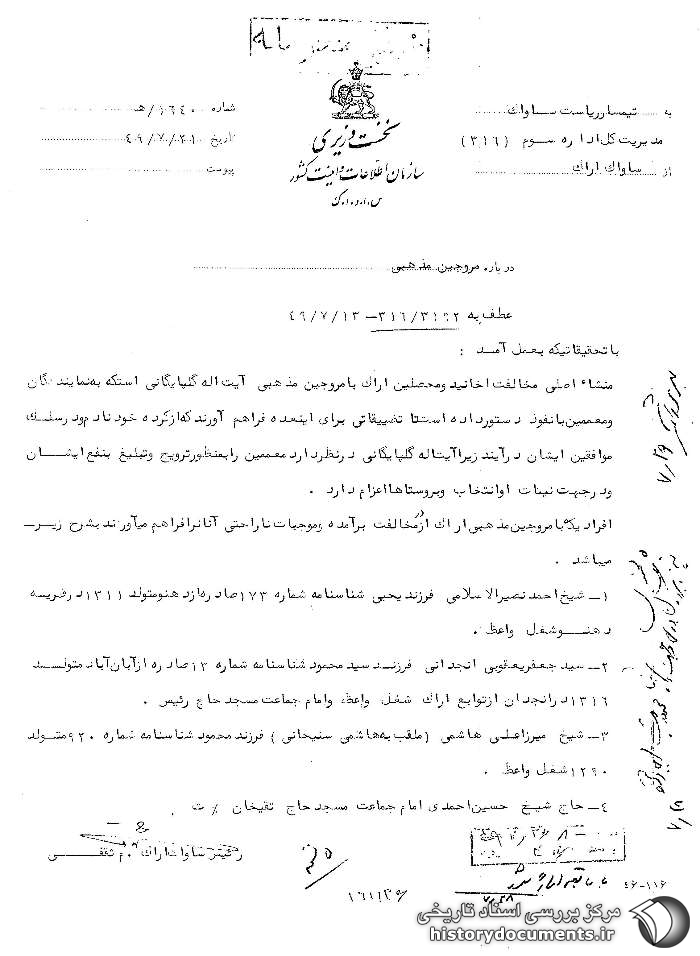 به تیمسار ریاست ساواک
شماره ۱۶۴۰۰/هـ
مدیریت کل اداره سوم (۳۱۶)
تاریخ ۴۹/۷/۲۱
از ساواک اراک
پیوست
نخست وزیری
سازمان اطلاعات و امنیت کشور
س.ا.و.ا.ک
درباره مروجین مذهبی
عطف به ۳۱۶/۳۱۹۲-۴۹/۷/۱۳
با تحقیقاتیکه بعمل آمد :
منشاء اصلی مخالفت اخانید ومحصلین اراک با مروجین مذهبی آیت اله گلپایگانی استکه به نمایندگان
ومعممین بانفوذ دستور داده است تا تضییقاتی برای اینعده فراهم آورند که از کرده خود نادم ودر سلک
موافقین ایشان درآیند زیرا آیت اله گلپایگانی درنظر دارد معممین را بمنظور ترویج وتبلیغ بنفع ایشان
ودر جهت نیات او انتخاب وبروستاها اعزام دارد .
افراد یکه با مروجین مذهبی اراک از در مخالفت برآمده وموجبات ناراحتی آنانرا فراهم میآورند بشرح زیر
میباشد .
۱ـ شیخ احمد نصیرالاسلامی فرزند یحیی شناسنامه شماره ۱۷۳ صادره از دهنو متولد ۱۳۱۱ در قریه
دهنو شغل واعظ .
۲ـ سید جعفر یعقوبی انجدانی فرزند سید محمود شناسنامه شماره ۱۳ صادره از آبان آباد متولد
۱۳۱۶ در انجدان از توابع اراک شغل واعظ وامام جماعت مسجد حاج رئیس .
۳ـ شیخ میرزا علی هاشمی (ملقب به هاشمی سنیجانی) فرزند محمود شناسنامه شماره ۹۲۰ متولد
۱۲۹۰ شغل واعظ .
۴ـ حاج شیخ حسین احمدی امام جماعت مسجد حاج تقیخان % ت
رئیس ساواک اراک . م ثقفی
۴۶-۱۱۶
مرکز بررسی اسناد تاریخی
historydocuments.ir